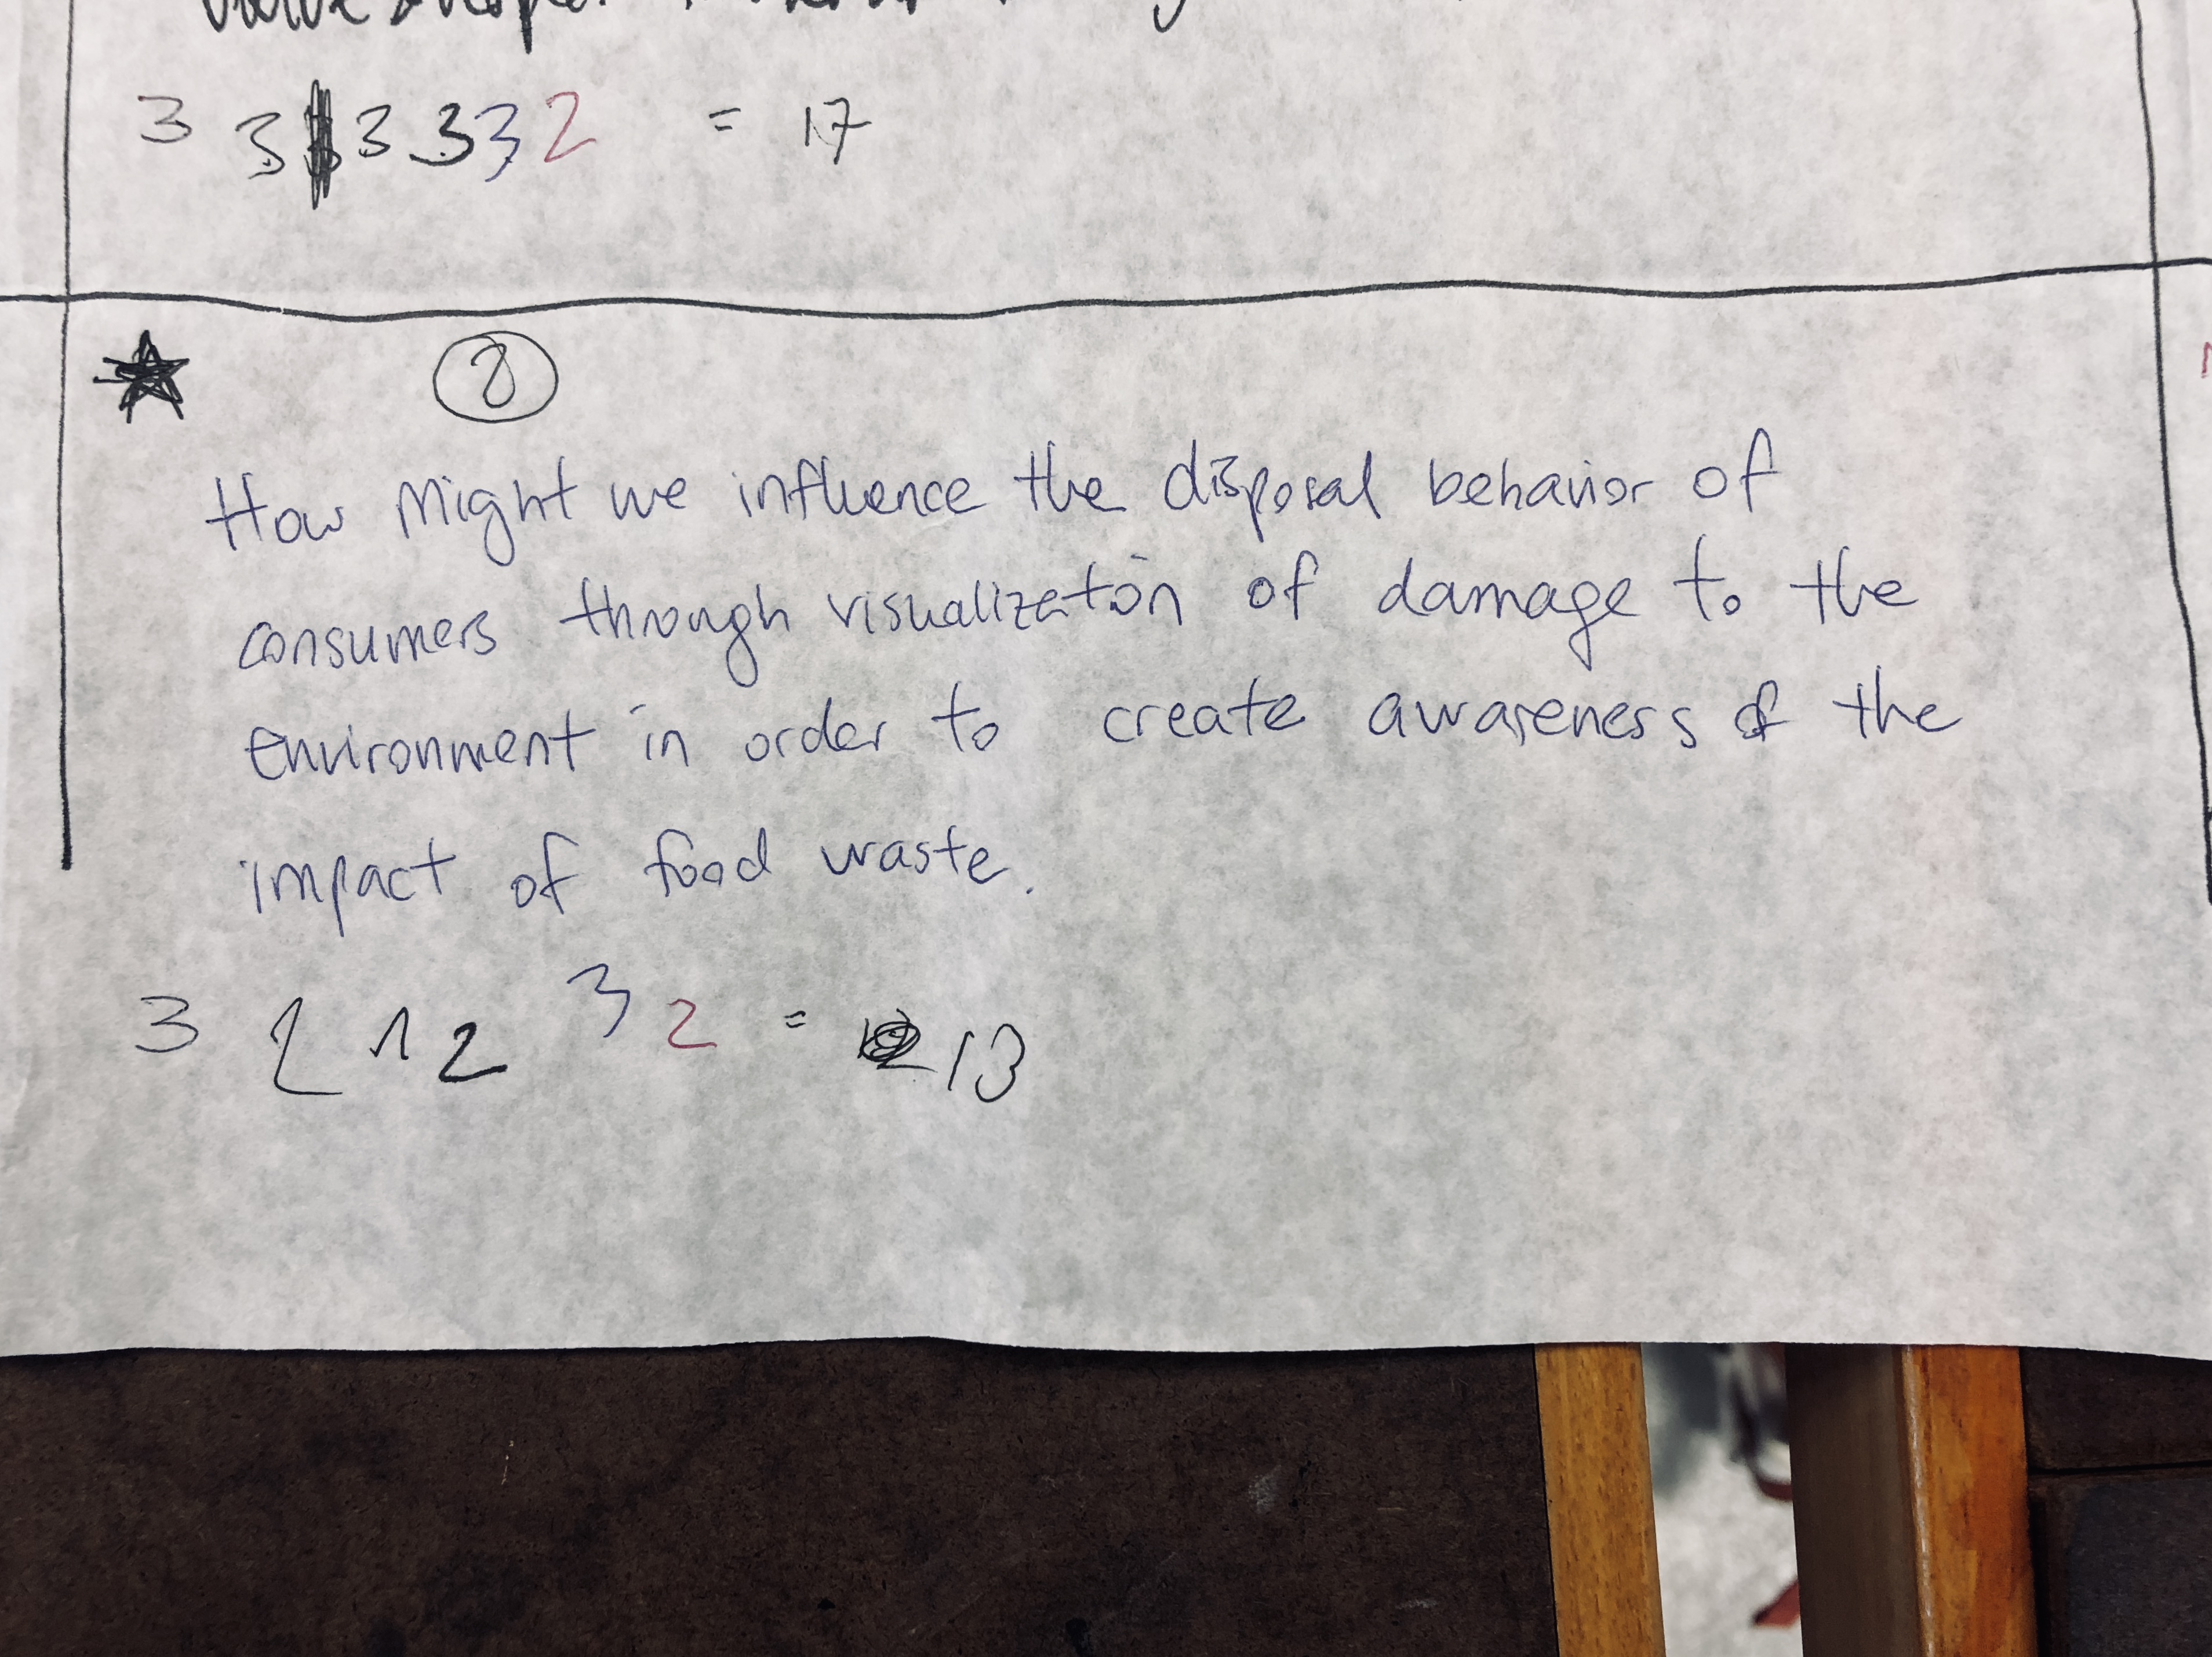 3 3 3 3 3 2 = 17
8
How Might we influence the disposal behavior of
consumers through visualization of damage to the
environment in order to create awareness of the
impact of food waste.
3 2 1 2 3 2 = 13